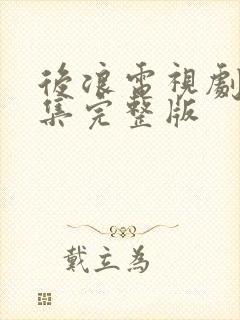 後浪電視劇
集完整版
戴立為